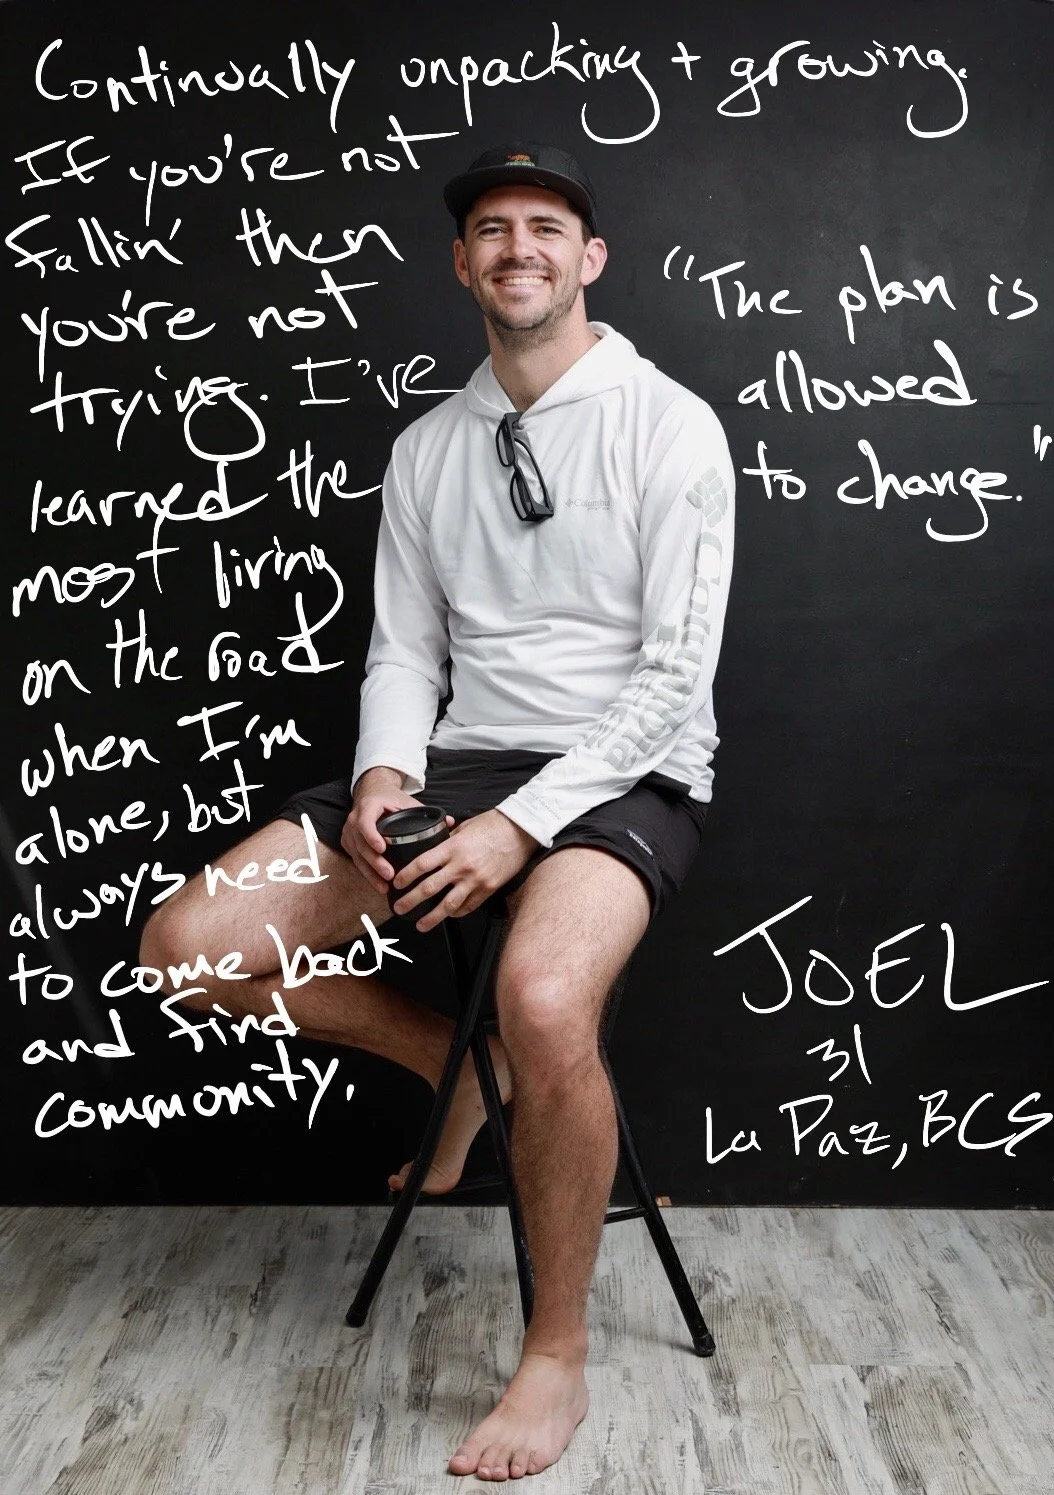 Continually unpacking + growing.
If you're not
fallin' then
you're not
trying. I've
learned the
most living
on the road
when I'm
alone, but
always need
to come back
and find
community.
"The plan is
allowed
to change."
Columbia
Columbia
JOEL
31
La Paz, BCS